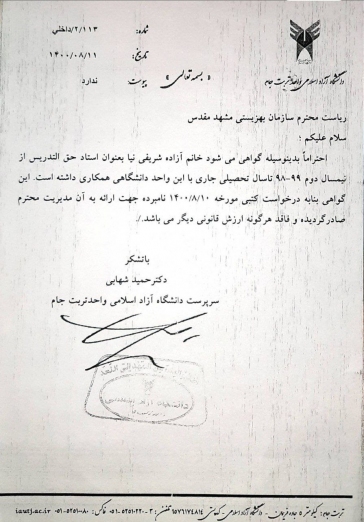 شماره: ۲/۱۱۳/داخلی
تاریخ: ۱۴۰۰/۰۸/۱۱
پیوست: ندارد
« بسمه تعالی »
دانشگاه آزاد اسلامی واحد تربت جام
ریاست محترم سازمان بهزیستی مشهد مقدس
سلام علیکم ؛
احتراماً بدینوسیله گواهی می شود خانم آزاده شریفی نیا بعنوان استاد حق التدریس از
نیمسال دوم ۹۹-۹۸ تاسال تحصیلی جاری با این واحد دانشگاهی همکاری داشته است. این
گواهی بنابه درخواست کتبی مورخه ۱۴۰۰/۸/۱۰ نامبرده جهت ارائه به آن مدیریت محترم
صادرگردیده و فاقد هرگونه ارزش قانونی دیگر می باشد./.
باتشکر
دکترحمید شهابی
سرپرست دانشگاه آزاد اسلامی واحدتربت جام
تربت جام: کیلومتر ۵ جاده فریمان - دانشگاه آزاد اسلامی - کدپستی ۹۵۷۶۱۷۴۸۱۴ تلفن: ۳-۰۵۱-۵۲۵۱۰۲۲۰ فاکس: ۰۵۱-۵۲۵۱۰۰۸۰ iautj.ac.ir